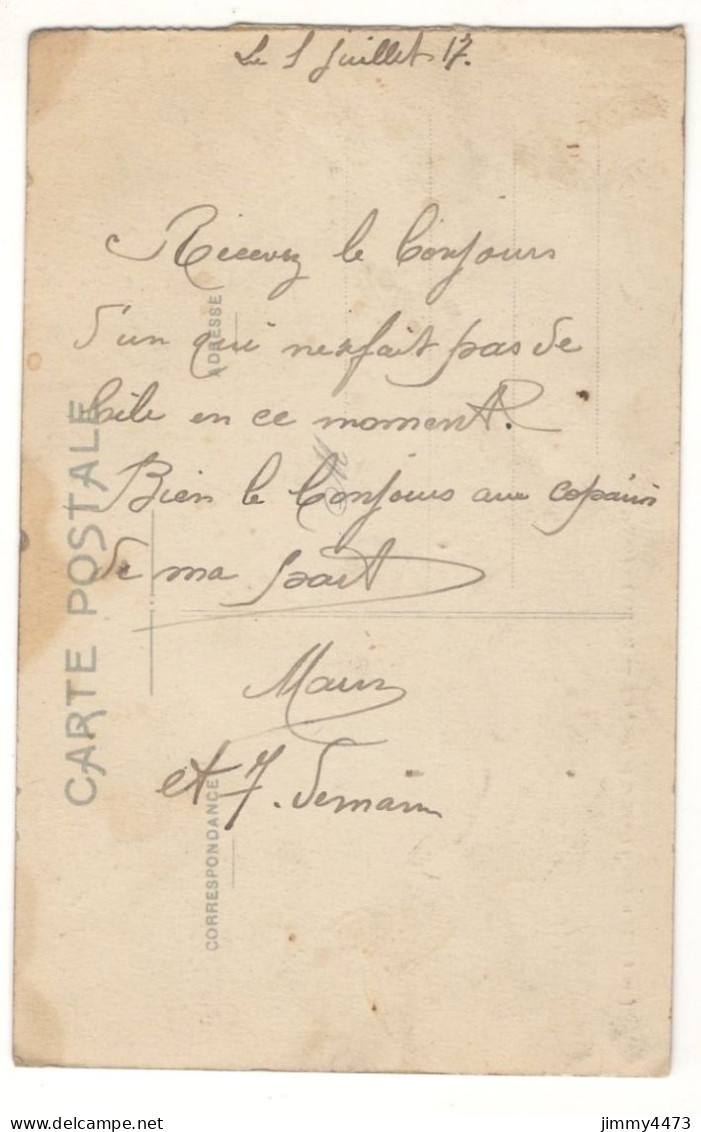 Le 1 Juillet 17.
Recevez le bonjours
d'un qui ne fait pas de
bile en ce moment.
Bien le bonjours aux copains
de ma part
et J.
CARTE POSTALE
ADRESSE
CORRESPONDANCE
jimmy4473